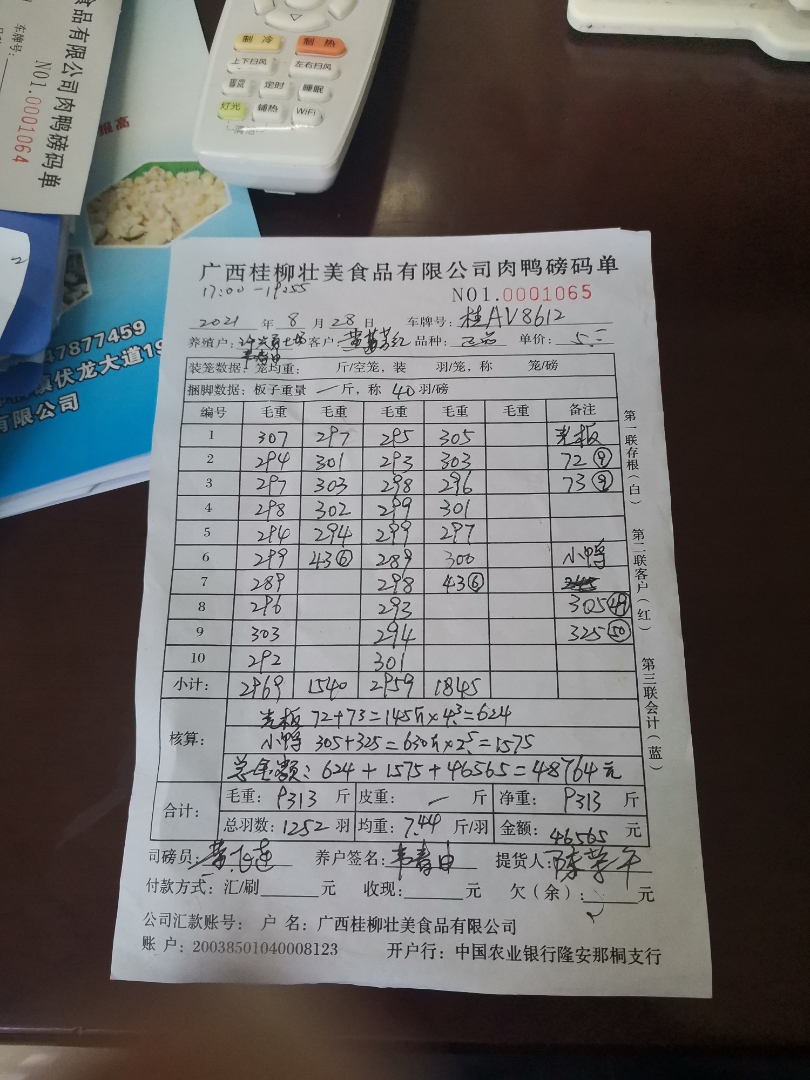 食品有限公司肉鸭磅码单
车牌号:
NO1.0001064
报高
47877459
镇伏龙大道19
有限公司
制冷 制热
上下扫风 左右扫风
定时 睡眠
灯光 辅热 WiFi
广西桂柳壮美食品有限公司肉鸭磅码单
17:00-19:55 NO1.0001065
2021 年 8 月 28 日 车牌号: 桂AV8612
养殖户: 客户: 品种: 单价: 5.
韦春由
装笼数据: 笼均重: 斤/空笼,装 羽/笼,称 笼/磅
捆脚数据: 板子重量 一 斤,称 40 羽/磅
编号 毛重 毛重 毛重 毛重 毛重 备注
1 307 297 295 305 光板
2 294 301 293 303 72 ⑨
3 297 303 298 296 73 ⑨
4 298 302 299 301
5 294 294 299 297
6 299 43⑥ 289 300 小鸭
7 289 298 43⑥
8 296 293 305 ㊾
9 303 294 325 ㊿
10 292 301
小计: 2969 1540 2959 1845
核算: 光板 72+73=145斤×4.3=624
小鸭 305+325=630斤×2.5=1575
总金额: 624+1575+46565=48764元
合计: 毛重: 9313 斤 皮重: 一 斤 净重: 9313 斤
总羽数: 1252 羽 均重: 7.44 斤/羽 金额: 46565 元
司磅员: 养户签名: 韦春由 提货人:
付款方式: 汇/刷 元 收现: 元 欠(余): 元
公司汇款账号: 户 名: 广西桂柳壮美食品有限公司
账 户: 20038501040008123 开户行: 中国农业银行隆安那桐支行
第一联存根(白)
第二联客户(红)
第三联会计(蓝)